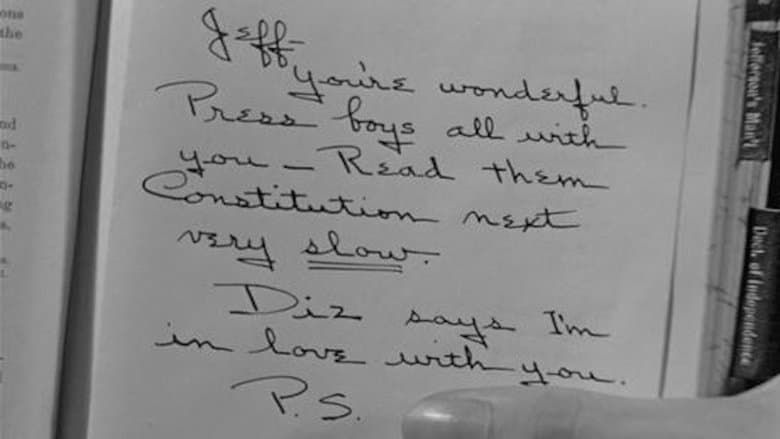 ons
the
nd
n-
he
n-
ng
s.
Jeff-
you're wonderful.
Press boys all with
you — Read them
Constitution next
very slow.
Diz says I'm
in love with you.
P.S.
Jefferson's Man'l
Decl. of Independence